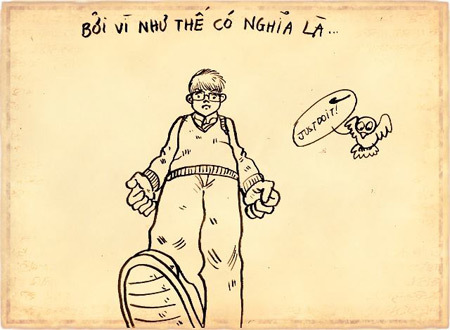 BỞI VÌ NHƯ THẾ CÓ NGHĨA LÀ...
JUST DO IT!